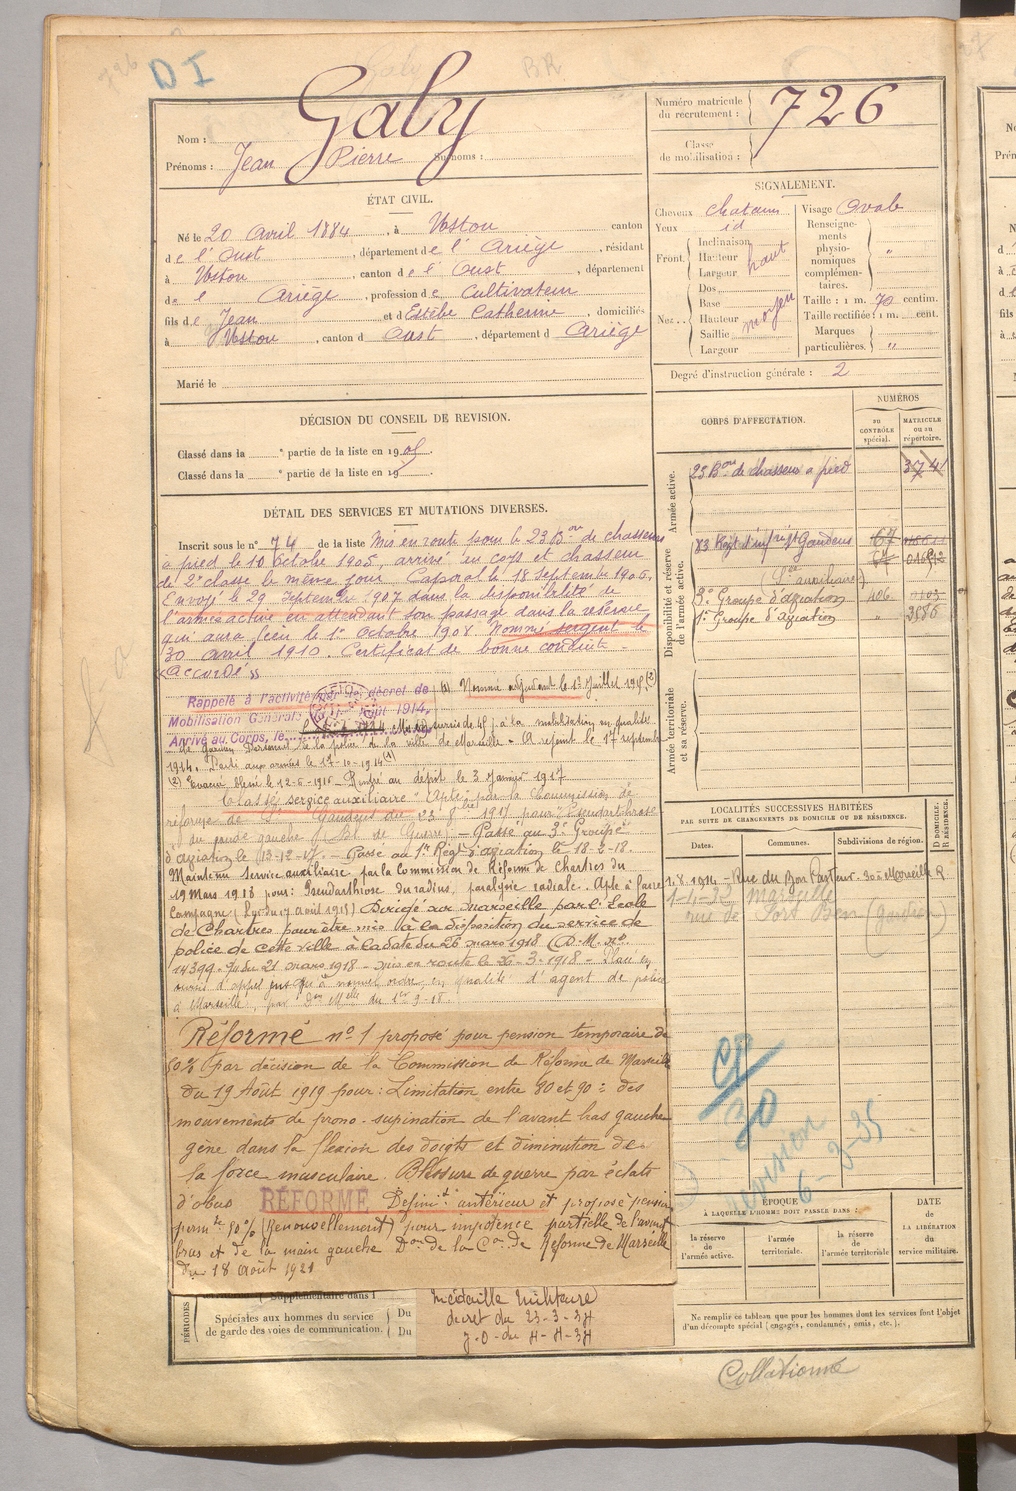 D I
BR
Nom : Galy
Prénoms : Jean Pierre Surnoms :
Numéro matricule du recrutement : 726
Classe de mobilisation :
ÉTAT CIVIL.
Né le 20 Avril 1884, à Ustou canton
de l'Oust, département de l'Ariège, résidant
à Ustou, canton de l'Oust, département
de l'Ariège, profession de Cultivateur
fils de Jean et d'Estèbe Catherine, domiciliés
à Ustou, canton d Oust, département d Ariège
Marié le
SIGNALEMENT.
Cheveux chatains
Yeux id
Front. Inclinaison Hauteur Largeur haut
Nez.. Dos, Base Hauteur Saillie Largeur moyen
Visage Ovale
Renseignements physionomiques complémentaires. "
Taille : 1 m. 70 centim.
Taille rectifiée : 1 m. cent.
Marques particulières. "
Degré d'instruction générale : 2
DÉCISION DU CONSEIL DE REVISION.
Classé dans la e partie de la liste en 1905.
Classé dans la e partie de la liste en 19
CORPS D'AFFECTATION.
NUMÉROS
AU CONTRÔLE spécial.
MATRICULE ou au répertoire.
Armée active.
23 Bon de chasseurs a pied 3741
Disponibilité et réserve de l'armée active.
83 Regt d'infie St Gaudens 67
(Sce auxiliaire)
3e Groupe d'aviation 406
1er Groupe d'aviation "
Armée territoriale et sa réserve.
DÉTAIL DES SERVICES ET MUTATIONS DIVERSES.
Inscrit sous le n° 74 de la liste Mis en route pour le 23 Bon de chasseurs
à pied le 10 Octobre 1905, arrivé au corps et chasseur
de 2e classe le même jour. Caporal le 18 septembre 1906.
Envoyé le 29 Septembre 1907 dans la disponibilité de
l'armée active en attendant son passage dans la réserve
qui aura lieu le 1er Octobre 1908. Nommé sergent le
30 avril 1910. Certificat de bonne conduite
"Accordé"
Rappelé à l'activité par décret de
Mobilisation Générale du 1er Août 1914,
Arrivé au Corps, le
(1) Nommé adjudant le 1er Juillet 1915 (2)
sursis de 45 j à la mobilisation en qualité
de Gardien Personnel de la police de la ville de Marseille - A rejoint le 17 septembre
1914. Parti aux armées le 17-10-1914 (1)
(2) Evacué blessé le 12-5-1916 - Rentré au dépôt le 3 Janvier 1917
Classé service auxiliaire "Apte" par la Commission de
réforme de St Gaudens du 23 8bre 1917 pour "Pseudarthrose
du coude gauche (Bl. de Guerre) - Passé au 3e Groupe
d'aviation le 13-12-17. - Passé au 1er Régt d'aviation le 18-2-18.
Maintenu service auxiliaire par la Commission de Réforme de Chartres du
19 Mars 1918 pour : Pseudarthrose du radius, paralysie radiale. Apte à faire
Campagne (Loi du 17 août 1915) Dirigé sur Marseille par l'Ecole
de Chartres pour être mis à la disposition du service de
police de cette ville à la date du 26 mars 1918 (D.M. no
14399 du 21 mars 1918 - mis en route le 26-3-1918 - Placé en
sursis d'appel jusqu'à nouvel ordre, en qualité d'agent de police
à Marseille, par Don Melle du 1er 9-18.
Réformé n° 1 proposé pour pension temporaire de
50% par décision de la Commission de Réforme de Marseille
du 19 Août 1919 pour : Limitation entre 80 et 90° des
mouvements de prono-supination de l'avant bras gauche
gène dans la flexion des doigts et diminution de
la force musculaire. Blessure de guerre par éclats
d'obus RÉFORME Définit antérieur et proposé pension
permte 50% (Renouvellement) pour impotence partielle de l'avant
bras et de la main gauche Don de la Con de Réforme de Marseille
du 18 Août 1921
LOCALITÉS SUCCESSIVES HABITÉES
PAR SUITE DE CHANGEMENTS DE DOMICILE OU DE RÉSIDENCE.
Dates. Communes. Subdivisions de région. D DOMICILE. R RÉSIDENCE.
1.8.1914 - Rue du Bon Pasteur. 30 Marseille R
Marseille
rue de (gardien)
CP
30
revision
6-3-35
ÉPOQUE
À LAQUELLE L'HOMME DOIT PASSER DANS :
la réserve de l'armée active.
l'armée territoriale.
la réserve de l'armée territoriale
DATE de LA LIBÉRATION du service militaire.
PÉRIODES
Supplémentaire dans l
Spéciales aux hommes du service de garde des voies de communication. Du Du
Médaille Militaire
décret du 23-3-34
J.O. du 4-4-34
Ne remplir ce tableau que pour les hommes dont les services font l'objet
d'un décompte spécial (engagés, condamnés, omis, etc.).
Collationné